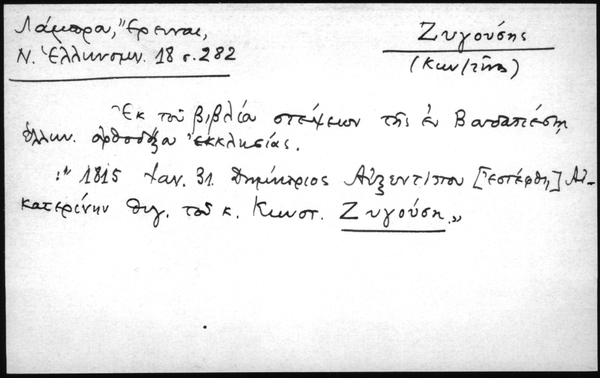 Λάμπρα, "Ερευναι,
Ν. Ἑλληνομν. 18 σ. 282
Ζυγούσης
(Κων/τῖνος)
Ἐκ τοῦ βιβλία στέψεων τῆς ἐν Βουδαπέστη
ἑλλην. ὀρθοδόξα ἐκκλησίας.
:" 1815 Ἰαν. 31. Δημήτριος Αὐξεντίου [ἐστέφθη] Αἰ-
κατερίνην θυγ. τοῦ κ. Κωνστ. Ζυγούση."